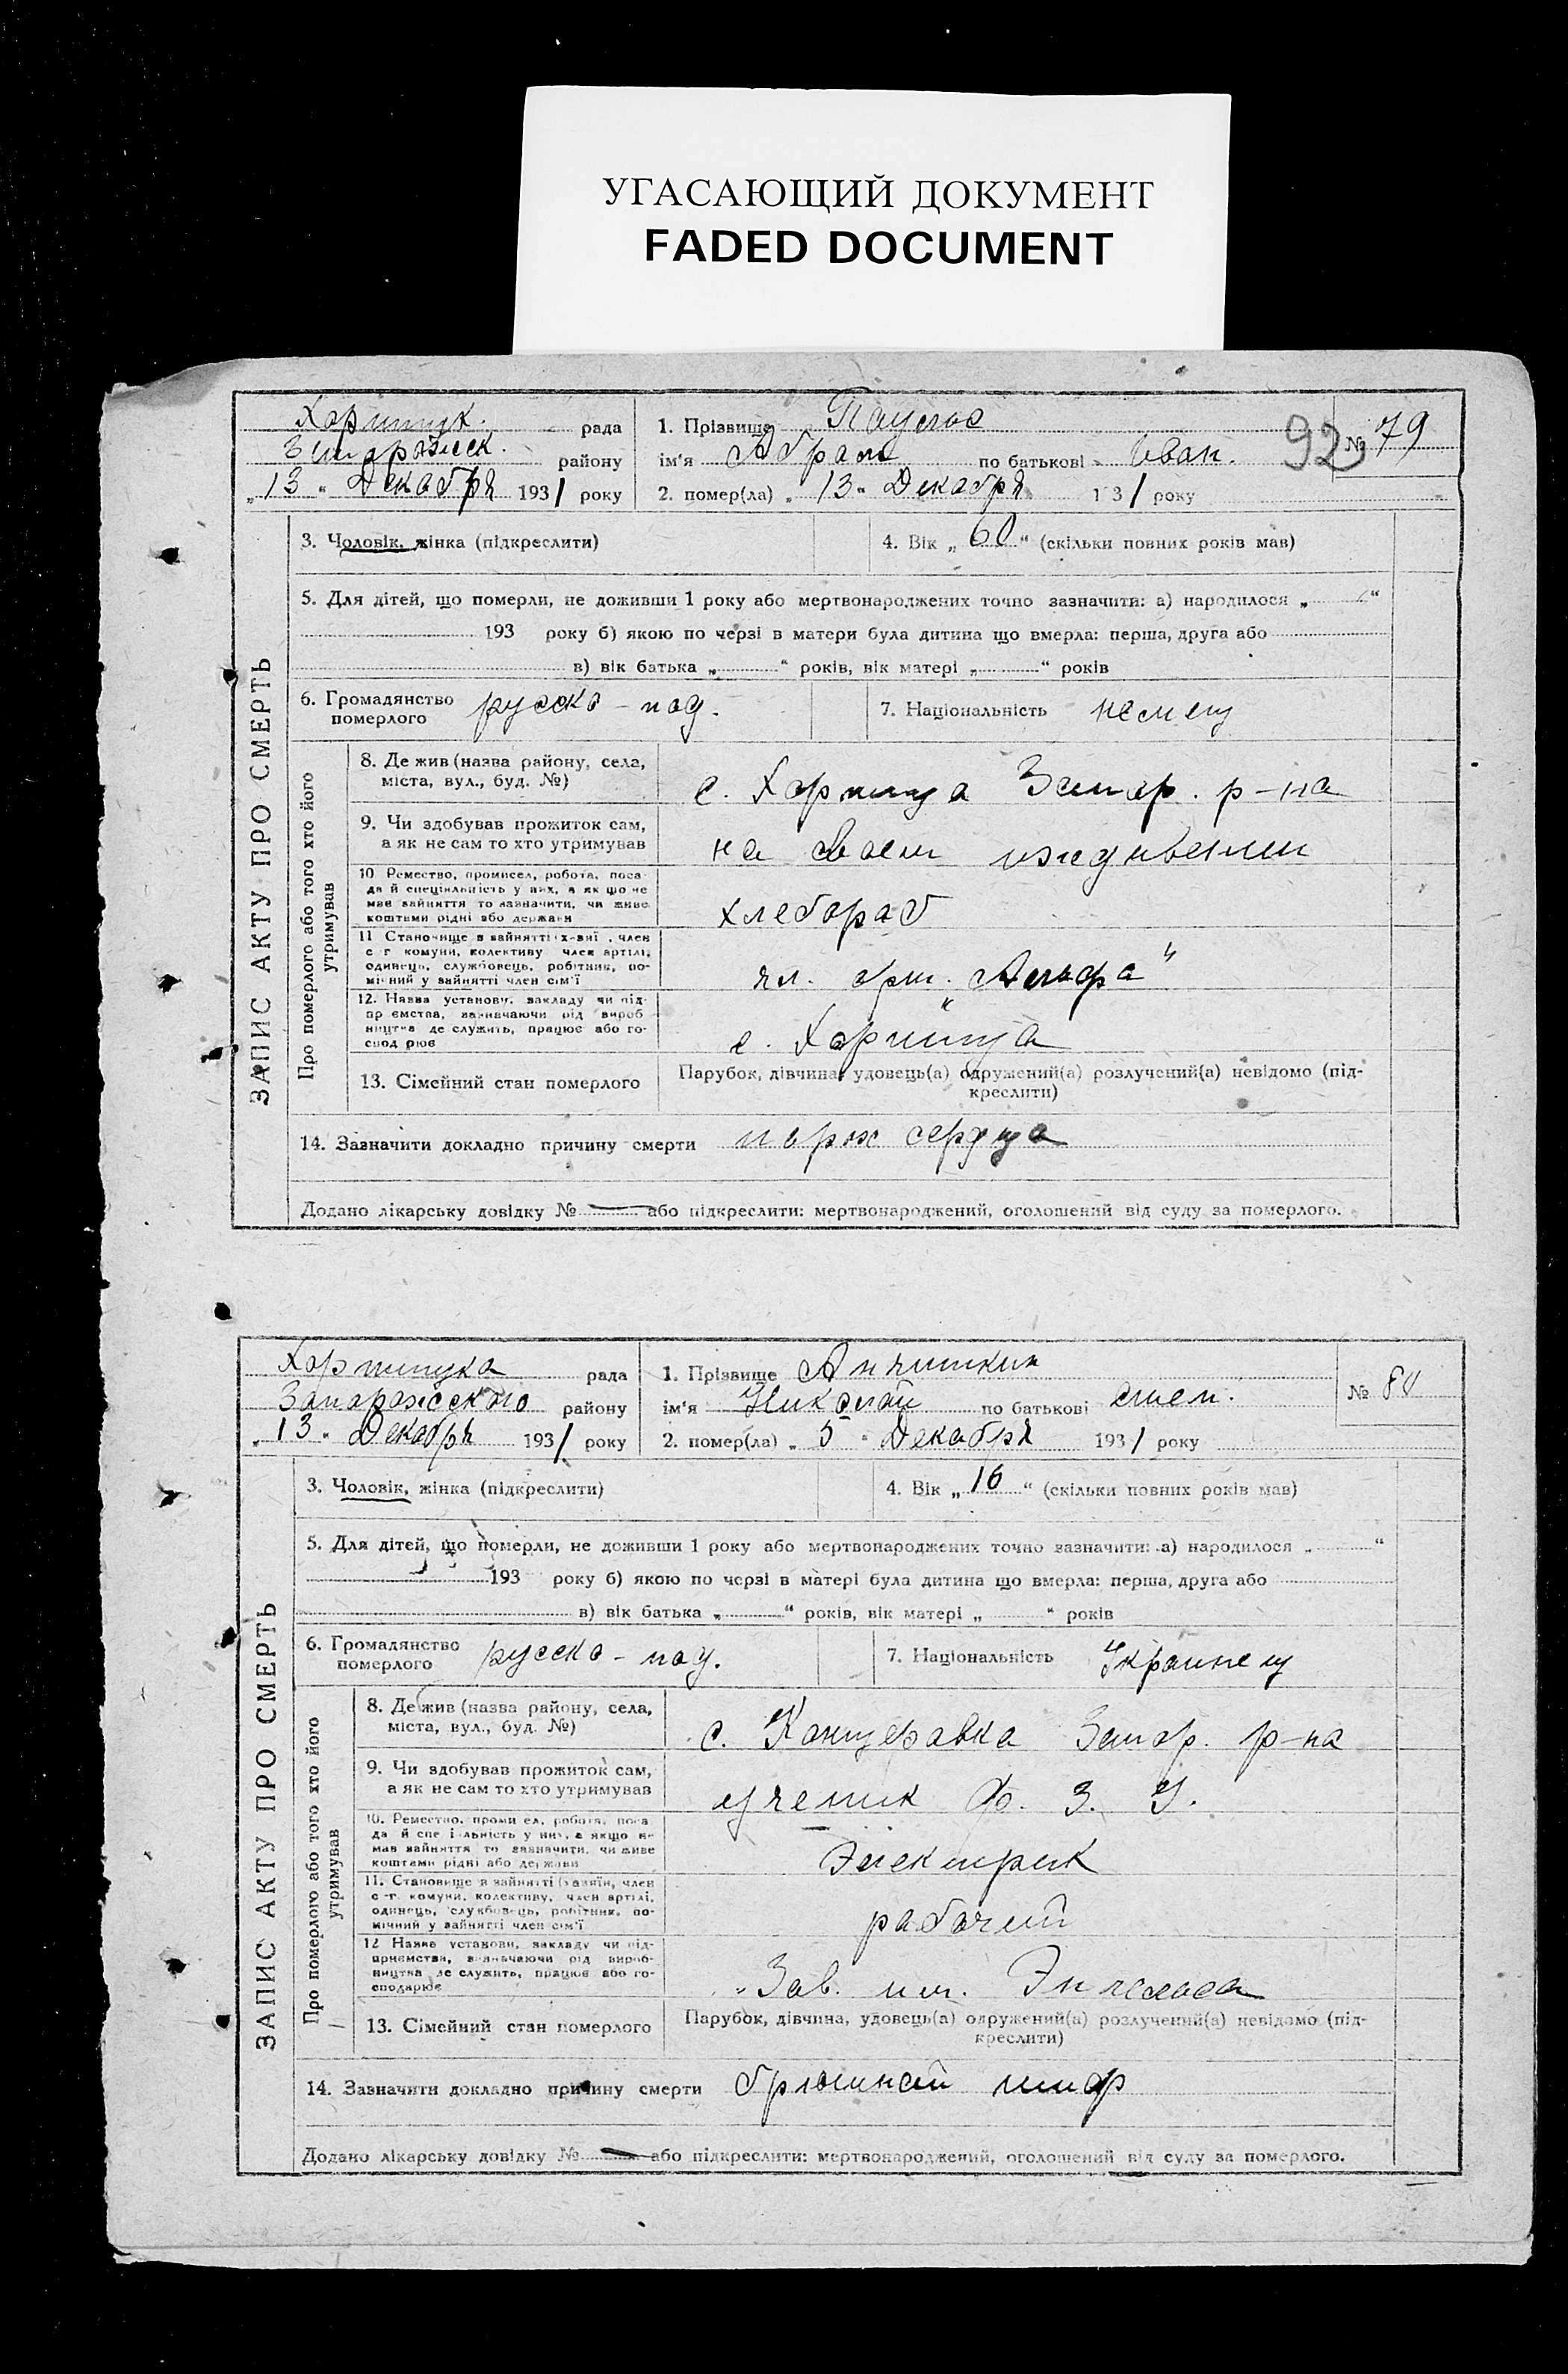 УГАСАЮЩИЙ ДОКУМЕНТ
FADED DOCUMENT
Хортицк. рада
Запорожск. району
„13“ Декабря 1931 року
1. Прізвище Паульс
92
№ 79
ім'я Абрам по батькові Иван.
2. помер(ла) „13“ Декабря 1931 року
ЗАПИС АКТУ ПРО СМЕРТЬ
3. Чоловік, жінка (підкреслити)
4. Вік „60“ (скільки повних років мав)
5. Для дітей, що померли, не доживши 1 року або мертвонароджених точно зазначити: а) народилося „ “
193 року б) якою по черзі в матери була дитина що вмерла: перша, друга або
в) вік батька „ “ років, вік матері „ “ років
6. Громадянство померлого русско-под.
7. Національність немец
Про померлого або того хто його утримував
8. Де жив (назва району, села, міста, вул., буд. №)
с. Хортица Запор. р-на
9. Чи здобував прожиток сам, а як не сам то хто утримував
на своем иждивении
10 Ремество, промисел, робота, посада й спеціяльність у них, а як що не мав зайняття то зазначити, чи живе коштами рідні або держави
хлебораб
11 Становище в зайнятті х-вні , член с г комуни, колективу член артілі, одинець, службовець, робітник, помічний у зайнятті член сім'ї
чл. арт. „Альфа“
12. Назва установи, закладу чи підпр ємства, зазначаючи рід виробництва де служить, працює або господ рює
с. Хортица
13. Сімейний стан померлого
Парубок, дівчина, удовець(а) одружений(а) розлучений(а) невідомо (підкреслити)
14. Зазначити докладно причину смерти порок сердца
Додано лікарську довідку № — або підкреслити: мертвонароджений, оголошений від суду за померлого.
Хортицка рада
Запорожского району
„13“ Декабря 1931 року
1. Прізвище Анчишкин
№ 80
ім'я Николай по батькові
2. помер(ла) „5“ Декабря 1931 року
ЗАПИС АКТУ ПРО СМЕРТЬ
3. Чоловік, жінка (підкреслити)
4. Вік „16“ (скільки повних років мав)
5. Для дітей, що померли, не доживши 1 року або мертвонароджених точно зазначити: а) народилося „ “
193 року б) якою по черзі в матері була дитина що вмерла: перша, друга або
в) вік батька „ “ років, вік матері „ “ років
6. Громадянство померлого русско-под.
7. Національність Украинец
Про померлого або того хто його утримував
8. Де жив (назва району, села, міста, вул., буд. №)
с. Канцеравка Запор. р-на
9. Чи здобував прожиток сам, а як не сам то хто утримував
ученик Ф. З. У.
10. Ремество, проми ел, робота, посада й спе і льність у них, а якщо не мав зайняття то зазначити, чи живе коштами рідні або держави
Электрик
11. Становище в зайнятті (хазяїн, член с-г. комуни, колективу, член артілі, одинець, службовець, робітник, помічний у зайнятті член сім'ї
рабочий
12 Назва установи, закладу чи підприємства, зазначаючи рід виробництва де служить, працює або господарює
Зав. им. Энгельса
13. Сімейний стан померлого
Парубок, дівчина, удовець(а) одружений(а) розлучений(а) невідомо (підкреслити)
14. Зазначити докладно причину смерти брюшной тиф
Додано лікарську довідку № — або підкреслити: мертвонароджений, оголошений від суду за померлого.